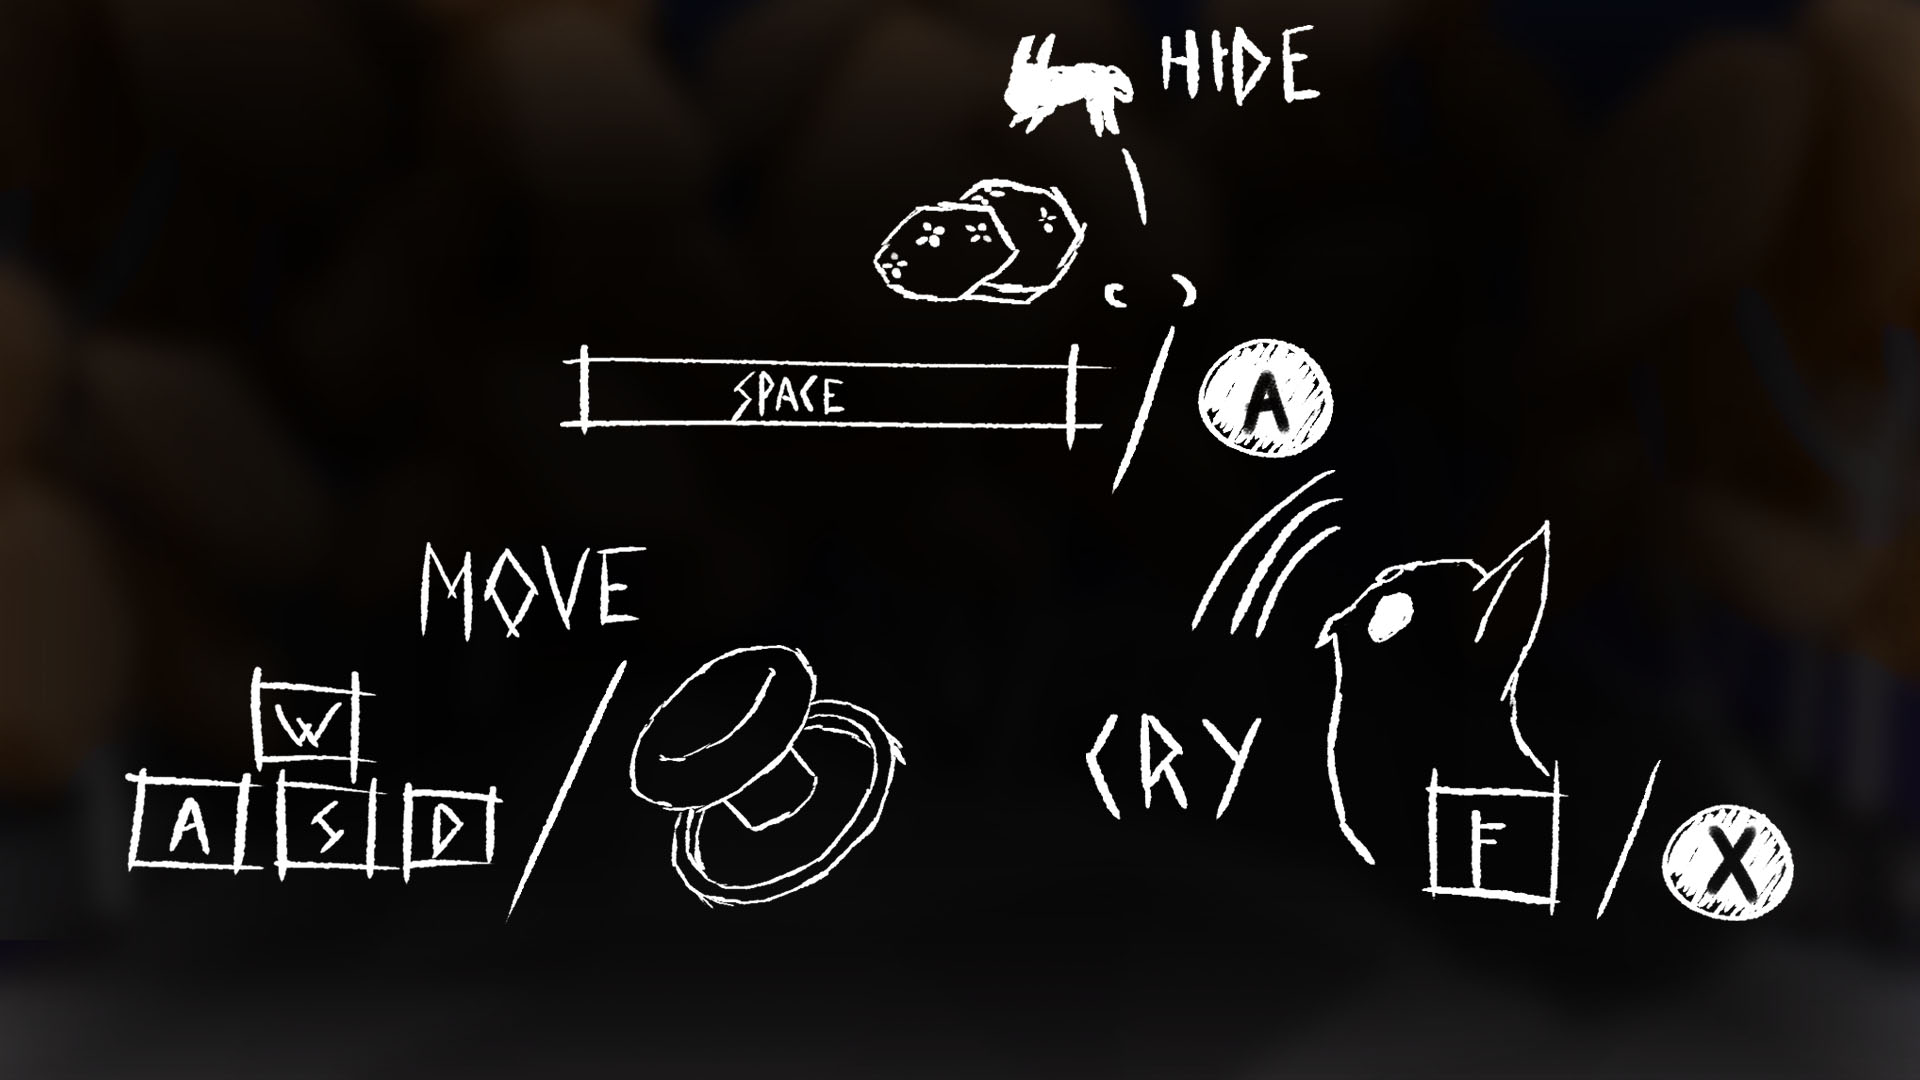 HIDE
SPACE / A
MOVE
W
A S D /
CRY
F / X